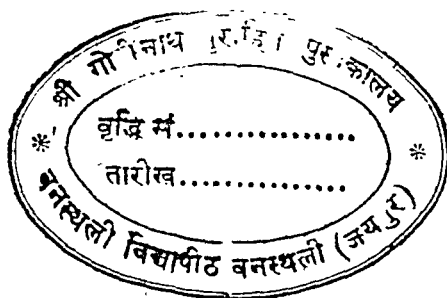 श्री गोपीनाथ पुरोहित पुस्तकालय
वृद्धि सं................
तारीख................
* बनस्थली विद्यापीठ बनस्थली (जयपुर) *